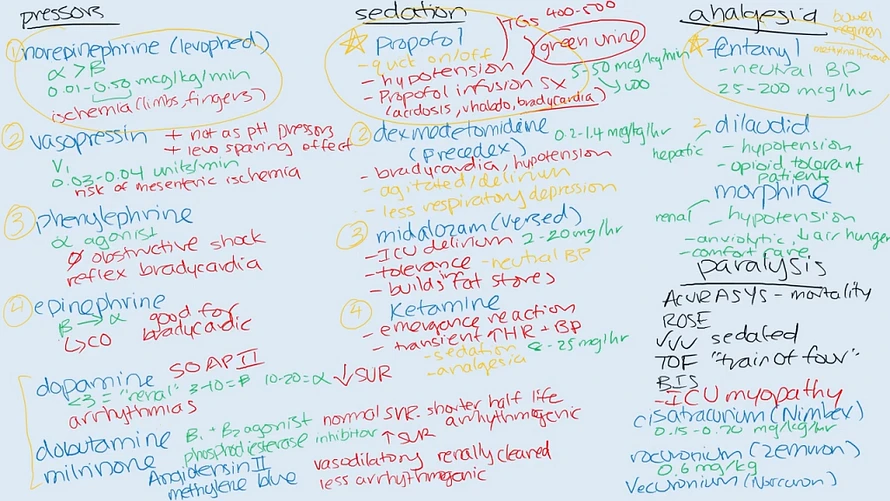 pressors
① norepinephrine (levophed)
α > β
0.01-0.50 mcg/kg/min
ischemia (limbs, fingers)
② vasopressin
+ not as pH pressors
+ levo sparing effect
V₁
0.03-0.04 units/min
risk of mesenteric ischemia
③ phenylephrine
α agonist
Ø obstructive shock
reflex bradycardia
④ epinephrine
β → α
↳CO
good for
bradycardic
SOAP II
dopamine
<3 = "renal" 3-10=β 10-20=α
arrhythmias
↓ SVR
dobutamine
β₁ + β₂ agonist
normal SVR. shorter half life
arrhythmogenic
milrinone
phosphodiesterase inhibitor
↑ SVR
vasodilatory renally cleaned
less arrhythmogenic
Angiotensin II
methylene blue
sedation
TGS 400-500
☆ propofol
green urine
- quck on/off
- hypotension
5-50 mcg/kg/min
- Propofol infusion sx
(acidosis, rhabdo, bradycardia)
② dexmedetomidine
0.2-1.4 mcg/kg/hr
(precedex)
- bradycardia, hypotension
- agitated/delirium
- less respiratory depression
③ midazolam (versed)
- ICU delirium 2-20 mg/hr
- tolerance - neutral BP
- builds in fat stores
④ Ketamine
- emergence reaction
- transient ↑HR + BP
- sedation
- analgesia
analgesia
bowel
regimen
☆ fentanyl
- neutral BP
25-200 mcg/hr
2 dilaudid
hepatic
- hypotension
- opioid tolerant
patients
morphine
renal
- hypotension
- anxiolytic, ↓ air hunger
- comfort care
paralysis
ACURASYS - mortality
ROSE
✓✓✓ sedated
TOF "train of four"
BIS
- ICU myopathy
cisatracurium (Nimbex)
rocuronium (zemuron)
0.6 mg/kg
vecuronium (Norcuron)